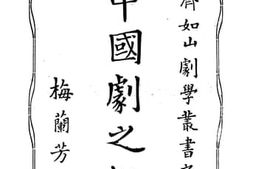 齊如山劇學叢書
中國劇之
梅蘭芳